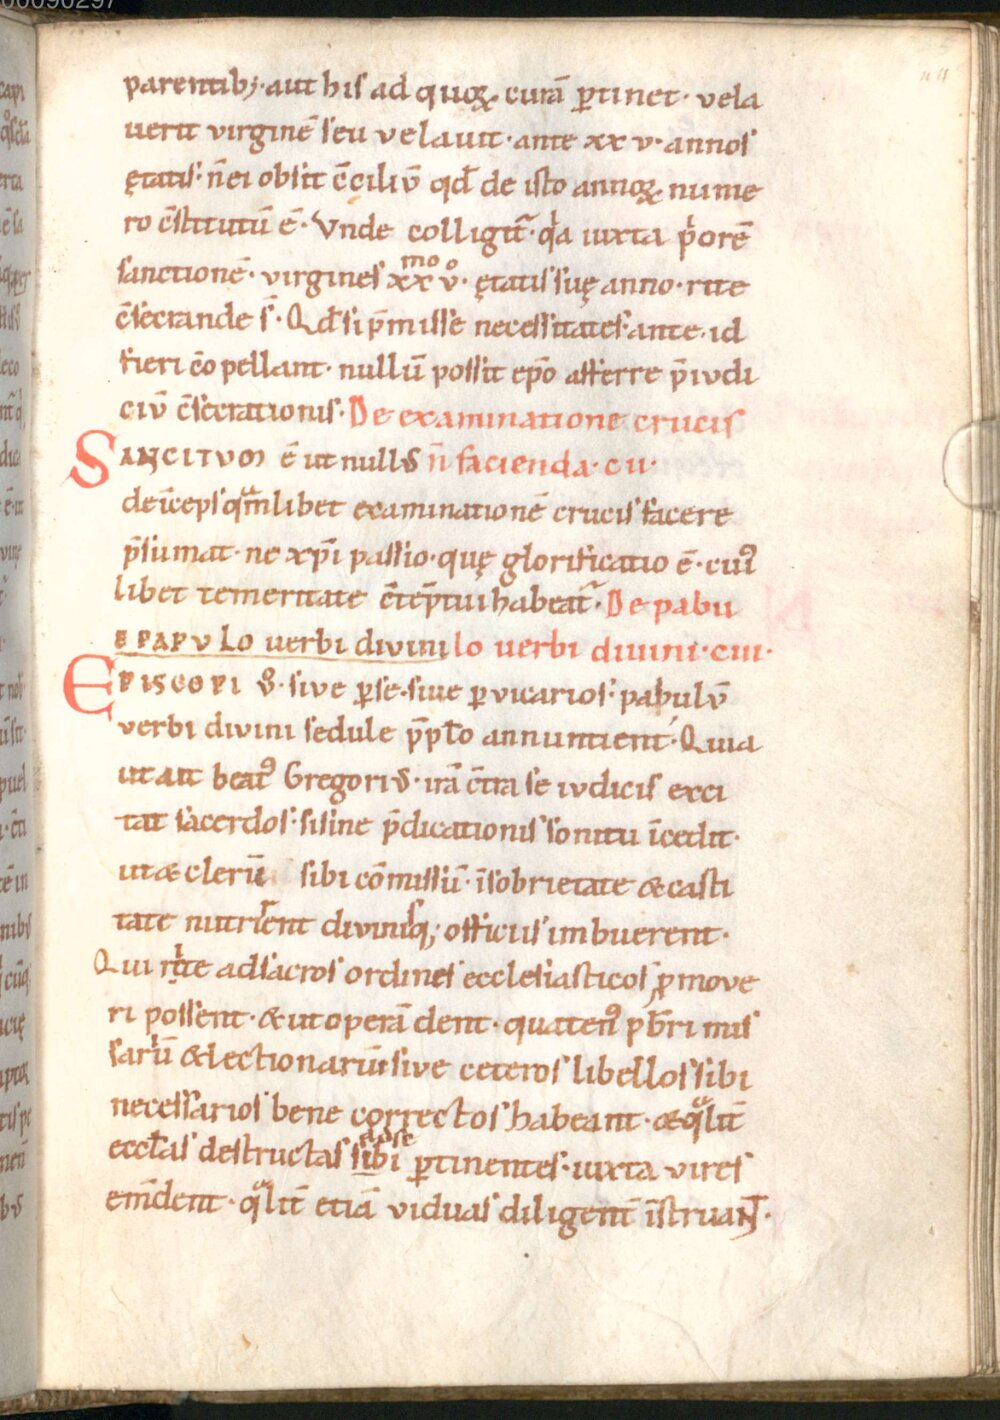 parentib; · aut his ad quoꝝ curā ꝑtinet · vela
uerit virginē seu velauit · ante xxv · annos
ętatis · n̄ ei obsit c̄ciliū qđ de isto annoꝝ nume
ro c̄stitutū ē · Vnde colligit᷑ · qͥa iuxta pͥorē
sanctionē · virgines xxᵐᵒ vͦ · ętatis suę anno · rite
c̄secrande s̄ · Qđ si p̄misse necessitates · ante · id
fieri cōpellant · nullū possit ep̄o afferre p̄iudi
ciū c̄secrationis · De examinatione crucis
SANCITVM ē ut nullus n̄ facienda · cii ·
deīceps qͣmlibet examinationē crucis facere
p̄sumat · ne xp̄i passio · quę glorificatio ē · cuiꝰ
libet temeritate c̄tēptui habeat᷑ · De pabu
E PAPVLo uerbi divini lo uerbi diuini · ciii ·
EPISCOPI vͦ · sive ꝑ se · siue ꝑ vicarios · pabulū
verbi divini sedule p̄pło annuntient · Quia
ut ait beatꝰ Gregorius · irā c̄tra se iudicis exci
tat sacerdos · si sine p̄dicationis sonitu īcedit ·
ut & clerū sibi cōmissū · ī sobrietate & casti
tate nutrirent divinisq; officiis imbuerent ·
Qui rite ad sacros ordines ecclesiasticos ꝓmove
ri possent · & ut operā dent · quatenꝰ pƀri mis
sariū & lectionariū sive ceteros libellos sibi
necessarios bene correctos habeant · & qͣlit̄
ad se
eccłas destructas sibi ꝑtinentes · iuxta vires
em̄dent · qͣlit̄ etiā viduas diligent̄ īstruant ·